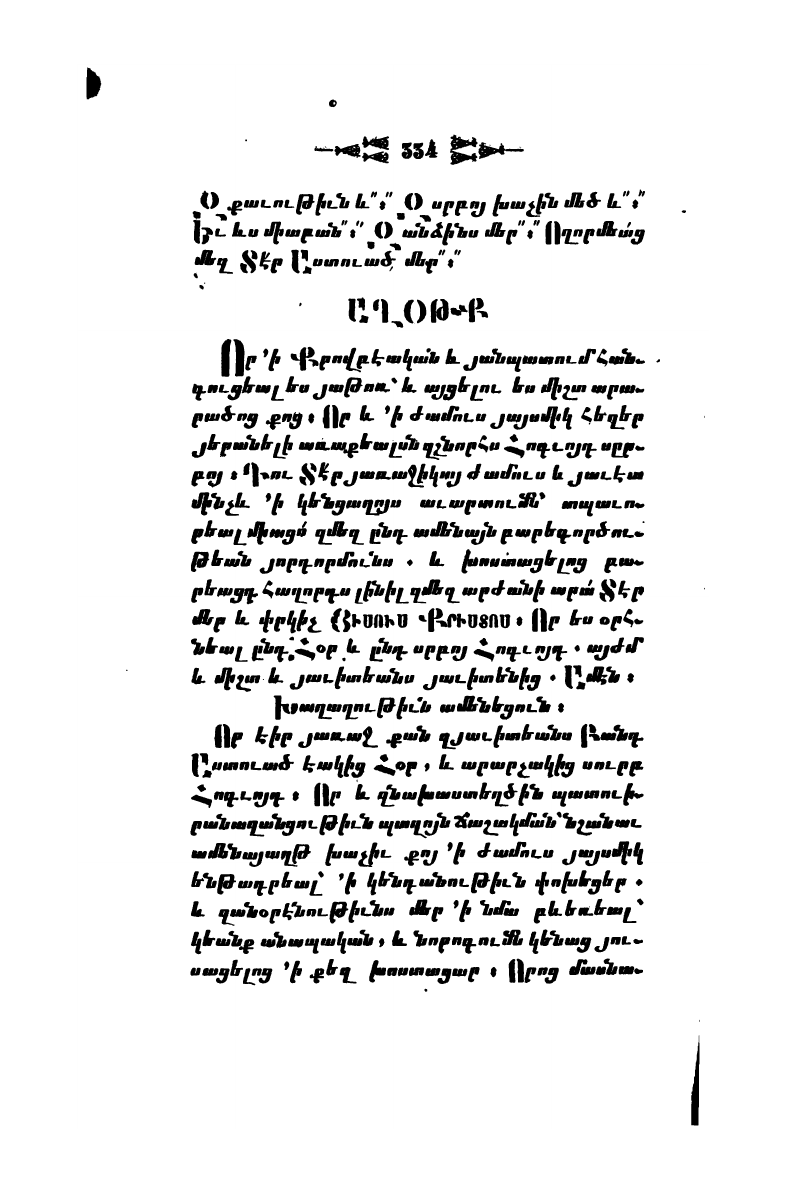 334
Զքաւութիւն և՛՛։՛՛ Զսրբոյ խաչին մեծ և՛՛։՛՛
Եւ ևս միաբան՛՛։՛՛ Զանձինս մեր՛՛։՛՛ Ողորմեաց
մեզ Տէր Աստուած մեր՛՛։՛՛
ԱՂՕԹՔ
Որ ՚ի Քրովբէական և յանպատում Հան֊
գուցեալ ես յաթոռ՝ և այցելու ես միշտ արա֊
րածոց քոց։ Որ և ՚ի ժամուս յայսմիկ Հեղեր
յերանելի առաքեալսն զշնորՀս Հոգւոյդ սրբ֊
բոյ։ Դու Տէր յառաջիկայ ժամուս և յաւէտ
մինչև ՚ի կենցաղոյս աւարտումն՝ տպաւո֊
րեալ միացո՛ զմեզ ընդ ամենայն բարեգործու֊
թեան յորդորմունս. և խոստացելոց բա֊
րեացդ Հաղորդս լինիլ զմեզ արժանի արա՛ Տէր
մեր և փրկիչ ՅԻՍՈՒՍ ՔՐԻՍՏՈՍ։ Որ ես օրՀ֊
նեալ ընդ Հօր և ընդ սրբոյ Հոգւոյդ. այժմ
և միշտ և յաւիտեանս յաւիտենից. Ամէն։
Խաղաղութիւն ամենեցուն։
Որ էիր յառաջ քան զյաւիտեանս Բանդ
Աստուած էակից Հօր, և արարչակից սուրբ
Հոգւոյդ։ Որ և զնախաստեղծին պատուի֊
րանազանցութիւն պտղոյն ճաշակման՝ նշանաւ
ամենայաղթ խաչիւ քոյ ՚ի ժամուս յայսմիկ
ենթադրեալ՝ ՚ի կենդանութիւն փոխեցեր.
և զանօրէնութիւնս մեր ՚ի նմա բևեռեալ՝
կեանք անապական, և նորոգումն կենաց յու֊
սացելոց ՚ի քեզ խոստացար։ Որոց մասնա֊